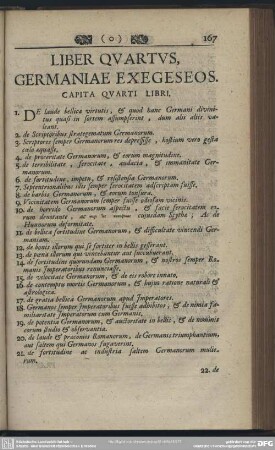 ( o ) 167
LIBER QVARTVS,
GERMANIAE EXEGESEOS.
CAPITA QVARTI LIBRI.
1. DE laude bellica virtutis, & quod hanc Germani divini-
tus quasi in sortem assumpserint, dum alii aliis va-
cant.
2. de Scriptoribus strategematum Germanorum.
3. Scriptores semper Germanorum res depressisse, hostium vero gesta
aquasse.
4. de proceritate Germanorum, & eorum magnitudine.
5. de terribilitate, ferocitate, audacia, & immanitate Ger-
manorum.
6. de fortitudine, impetu, & resistentia Germanorum.
7. Septentrionalibus olis semper ferocitatem adscriptam fuisse.
8. de barba Germanorum, & eorum tonsura.
9. Vicinitatem Germanorum semper fuisse obsessam vicinis.
10. de horrido Germanorum aspectu, & facie ferocitatem eo-
rum denotante, cujusdam Scytha; Ac de
Hunnorum deformitate.
11. de bellica fortitudine Germanorum, & difficultate vincendi Ger-
maniam.
12. de bonis illorum qui se fortiter in bellis gesserant.
13. de poena illorum qui vincebantur aut succumberant.
14. de fortitudine quorundam Germanorum, & illoso semper Ro-
manis Imperatoribus renuntiasse.
15. de velocitate Germanorum, & de eis robore innato.
16. de contemptu mortis Germanorum, & hujus ratione naturali &
astrologica.
17. de gratia bellica Germanorum apud Imperatores.
18. Germanos semper Imperatoribus fuisse adhibitos, & de nimia fa-
miliaritate Imperatorum cum Germanis.
19. de potentia Germanorum, & auctoritate in bellis, & de nominis
eorum studio & observantia.
20. de laude & praemiis Romanorum, de Germanis triumphantium,
aut saltem qui Germanos fugaverant.
21. de fortitudine ac industria saltem Germanorum mulie-
rum.
22. de